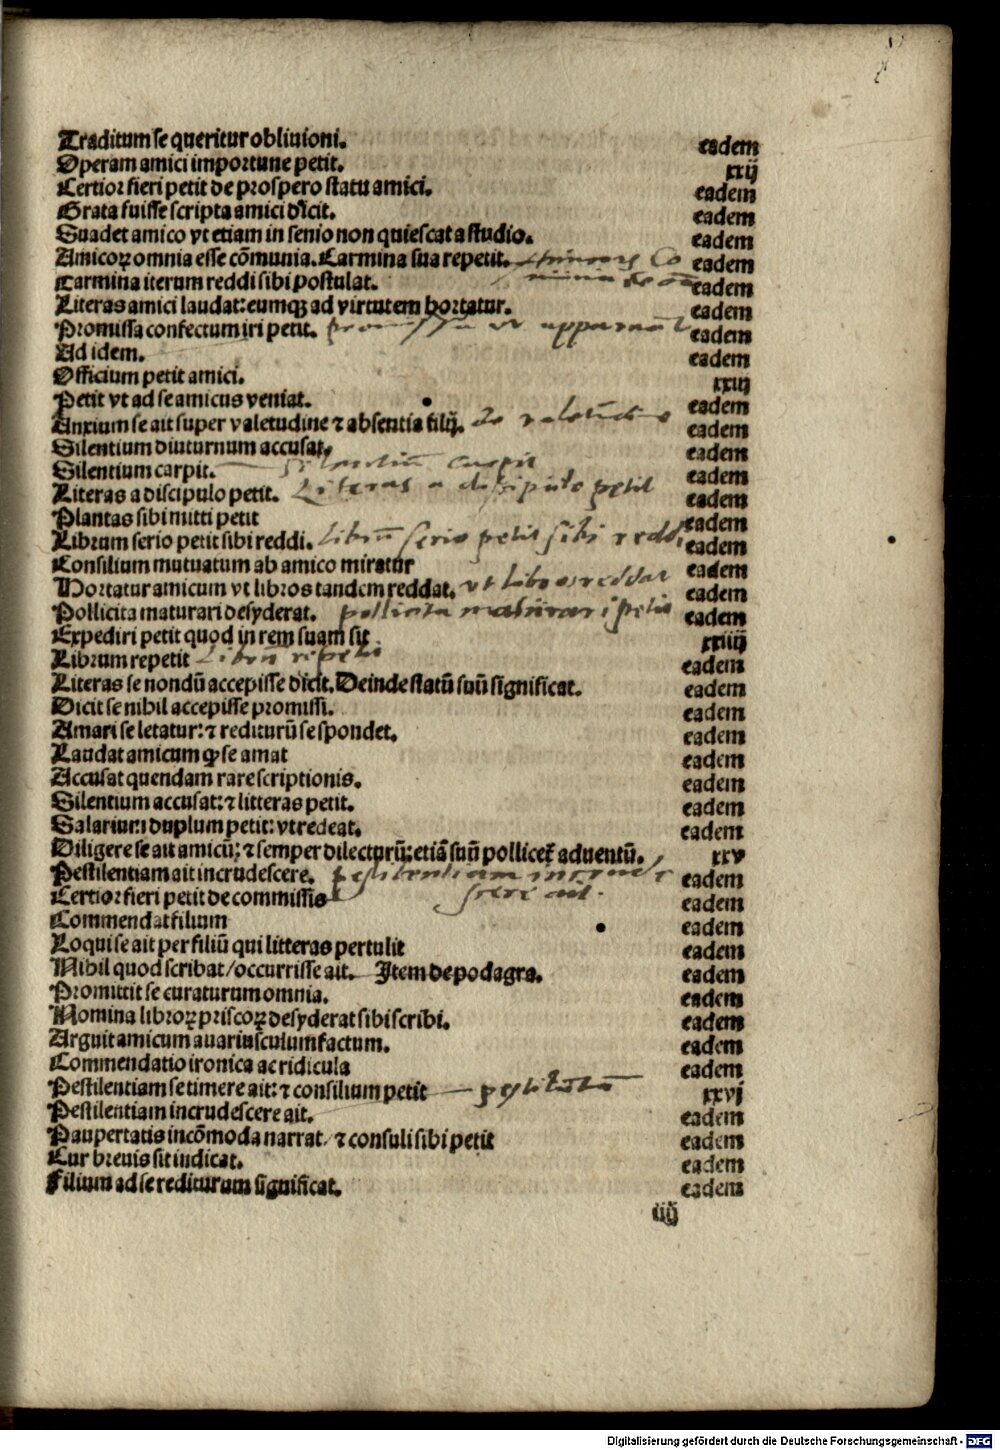 Traditum se queritur obliuioni. eadem
Operam amici importune petit. xxij
Certior fieri petit de prospero statu amici. eadem
Grata fuisse scripta amici dicit. eadem
Suadet amico vt etiam in senio non quiescat a studio. eadem
Amicoꝝ omnia esse cõmunia. Carmina sua repetit. eadem
Carmina iterum reddi sibi postulat. eadem
Literas amici laudat: eumqꝫ ad virtutem hortatur. eadem
Promissa confectum iri petit. promissa vt eadem
Ad idem. eadem
Officium petit amici. xxiij
Petit vt ad se amicus veniat. eadem
Anxium se ait super valetudine ⁊ absentia filij. de valetudine eadem
Silentium diuturnum accusat. eadem
Silentium carpit. Silentiũ carpit eadem
Literas a discipulo petit. Literas a discipulo petit eadem
Plantas sibi mitti petit eadem
Librum serio petit sibi reddi. librũ serio petit sibi reddi eadem
Consilium mutuatum ab amico miratur eadem
Hortatur amicum vt libros tandem reddat. vt libros reddat eadem
Pollicita maturari desyderat. pollicita maturari petit eadem
Expediri petit quod in rem suam sit xxiiij
Librum repetit Librũ repetit eadem
Literas se nondũ accepisse dicit. Deinde statũ suũ significat. eadem
Dicit se nihil accepisse promissi. eadem
Amari se letatur: ⁊ rediturũ se spondet. eadem
Laudat amicum ꝙ se amat eadem
Accusat quendam rare scriptionis. eadem
Silentium accusat: ⁊ litteras petit. eadem
Salarium duplum petit: vt redeat. eadem
Diligere se ait amicũ: ⁊ semper dilecturũ: etiã suũ pollicet̃ aduentũ. xxv
Pestilentiam ait incrudescere. pestilentiam incrude eadem
Certior fieri petit de commissis scere ait. eadem
Commendat filium eadem
Loqui se ait per filiũ qui litteras pertulit eadem
Nihil quod scribat/occurrisse ait. Item de podagra. eadem
Promittit se curaturum omnia. eadem
Nomina libroꝝ priscoꝝ desyderat sibi scribi. eadem
Arguit amicum auariusculum factum. eadem
Commendatio ironica ac ridicula eadem
Pestilentiam se timere ait: ⁊ consilium petit xxvj
Pestilentiam incrudescere ait. eadem
Paupertatis incõmoda narrat ⁊ consuli sibi petit eadem
Cur breuis sit indicat. eadem
Filium ad se rediturum significat. eadem
iiij
Digitalisierung gefördert durch die Deutsche Forschungsgemeinschaft - DFG